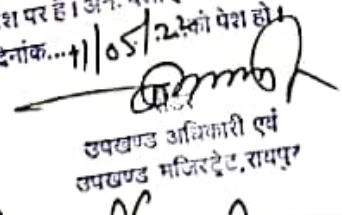 श पर है। अतः
दिनांक...11/05/22 को पेश हो।
उपखण्ड अधिकारी एवं
उपखण्ड मजिस्ट्रेट, रायपुर